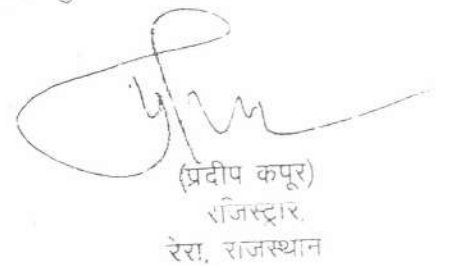 (प्रदीप कपूर)
रजिस्ट्रार,
रेरा, राजस्थान